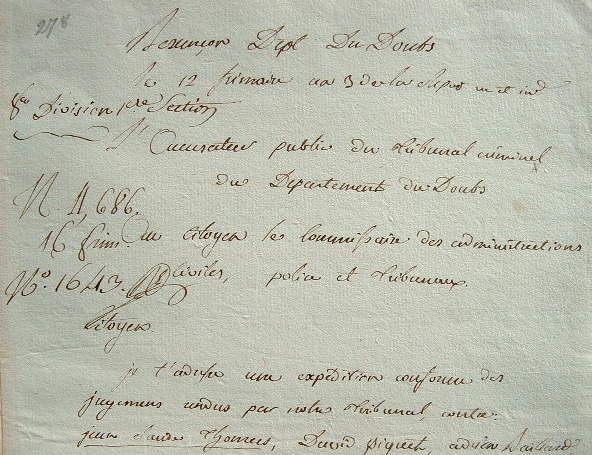 278
Besançon Dept Du Doubs
le 12 frimaire an 3 de la Repub un et ind
8e Division 1ere Section
L'accusateur public du tribunal criminel
du Departement du Doubs
N. 4,686.
16 frim. au Citoyen les Commissaire des administrations
No. 1643. Civiles, police et tribunaux.
Citoyen
je t'adresse une expédition conforme des
jugemens rendus par notre tribunal, contre
jean claude Thomas, David piquet, adrien